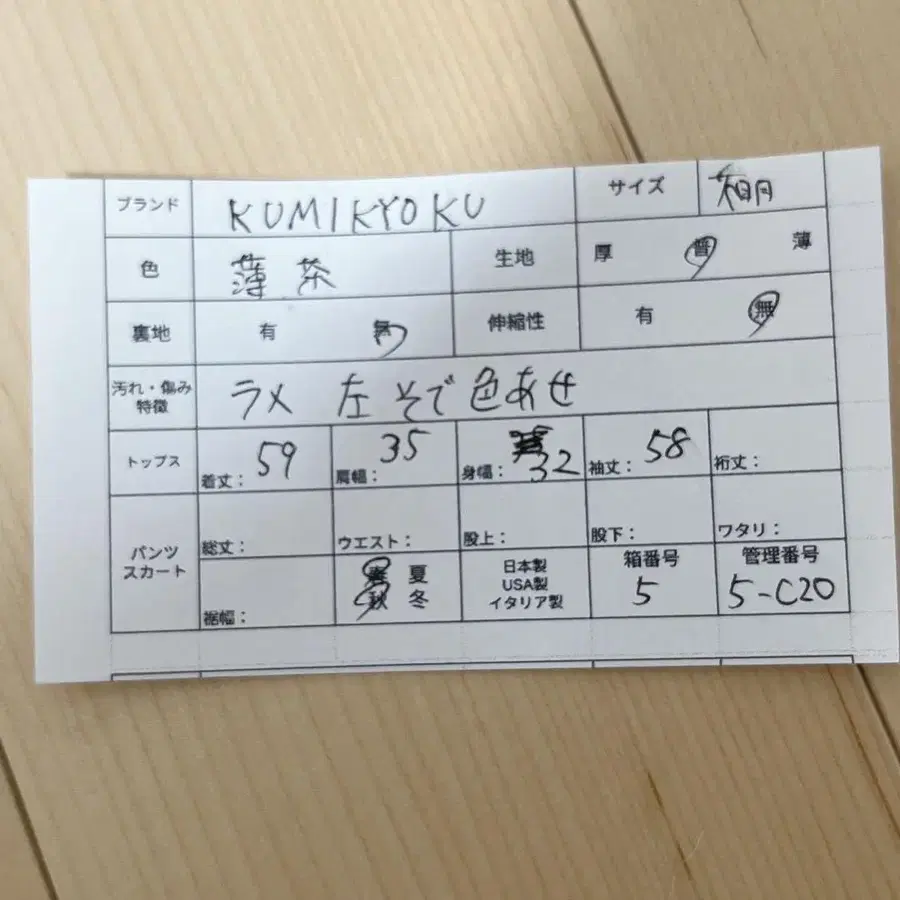 ブランド KUMIKYOKU サイズ
色 薄茶 生地 厚 普 薄
裏地 有 無 伸縮性 有 無
汚れ・傷み
特徴 ラメ 左そで色あせ
トップス 着丈: 59 肩幅: 35 身幅: 32 袖丈: 58 裄丈:
パンツ
スカート 総丈: ウエスト: 股上: 股下: ワタリ:
裾幅: 春 夏
秋 冬
日本製
USA製
イタリア製
箱番号 管理番号
5 5-C20